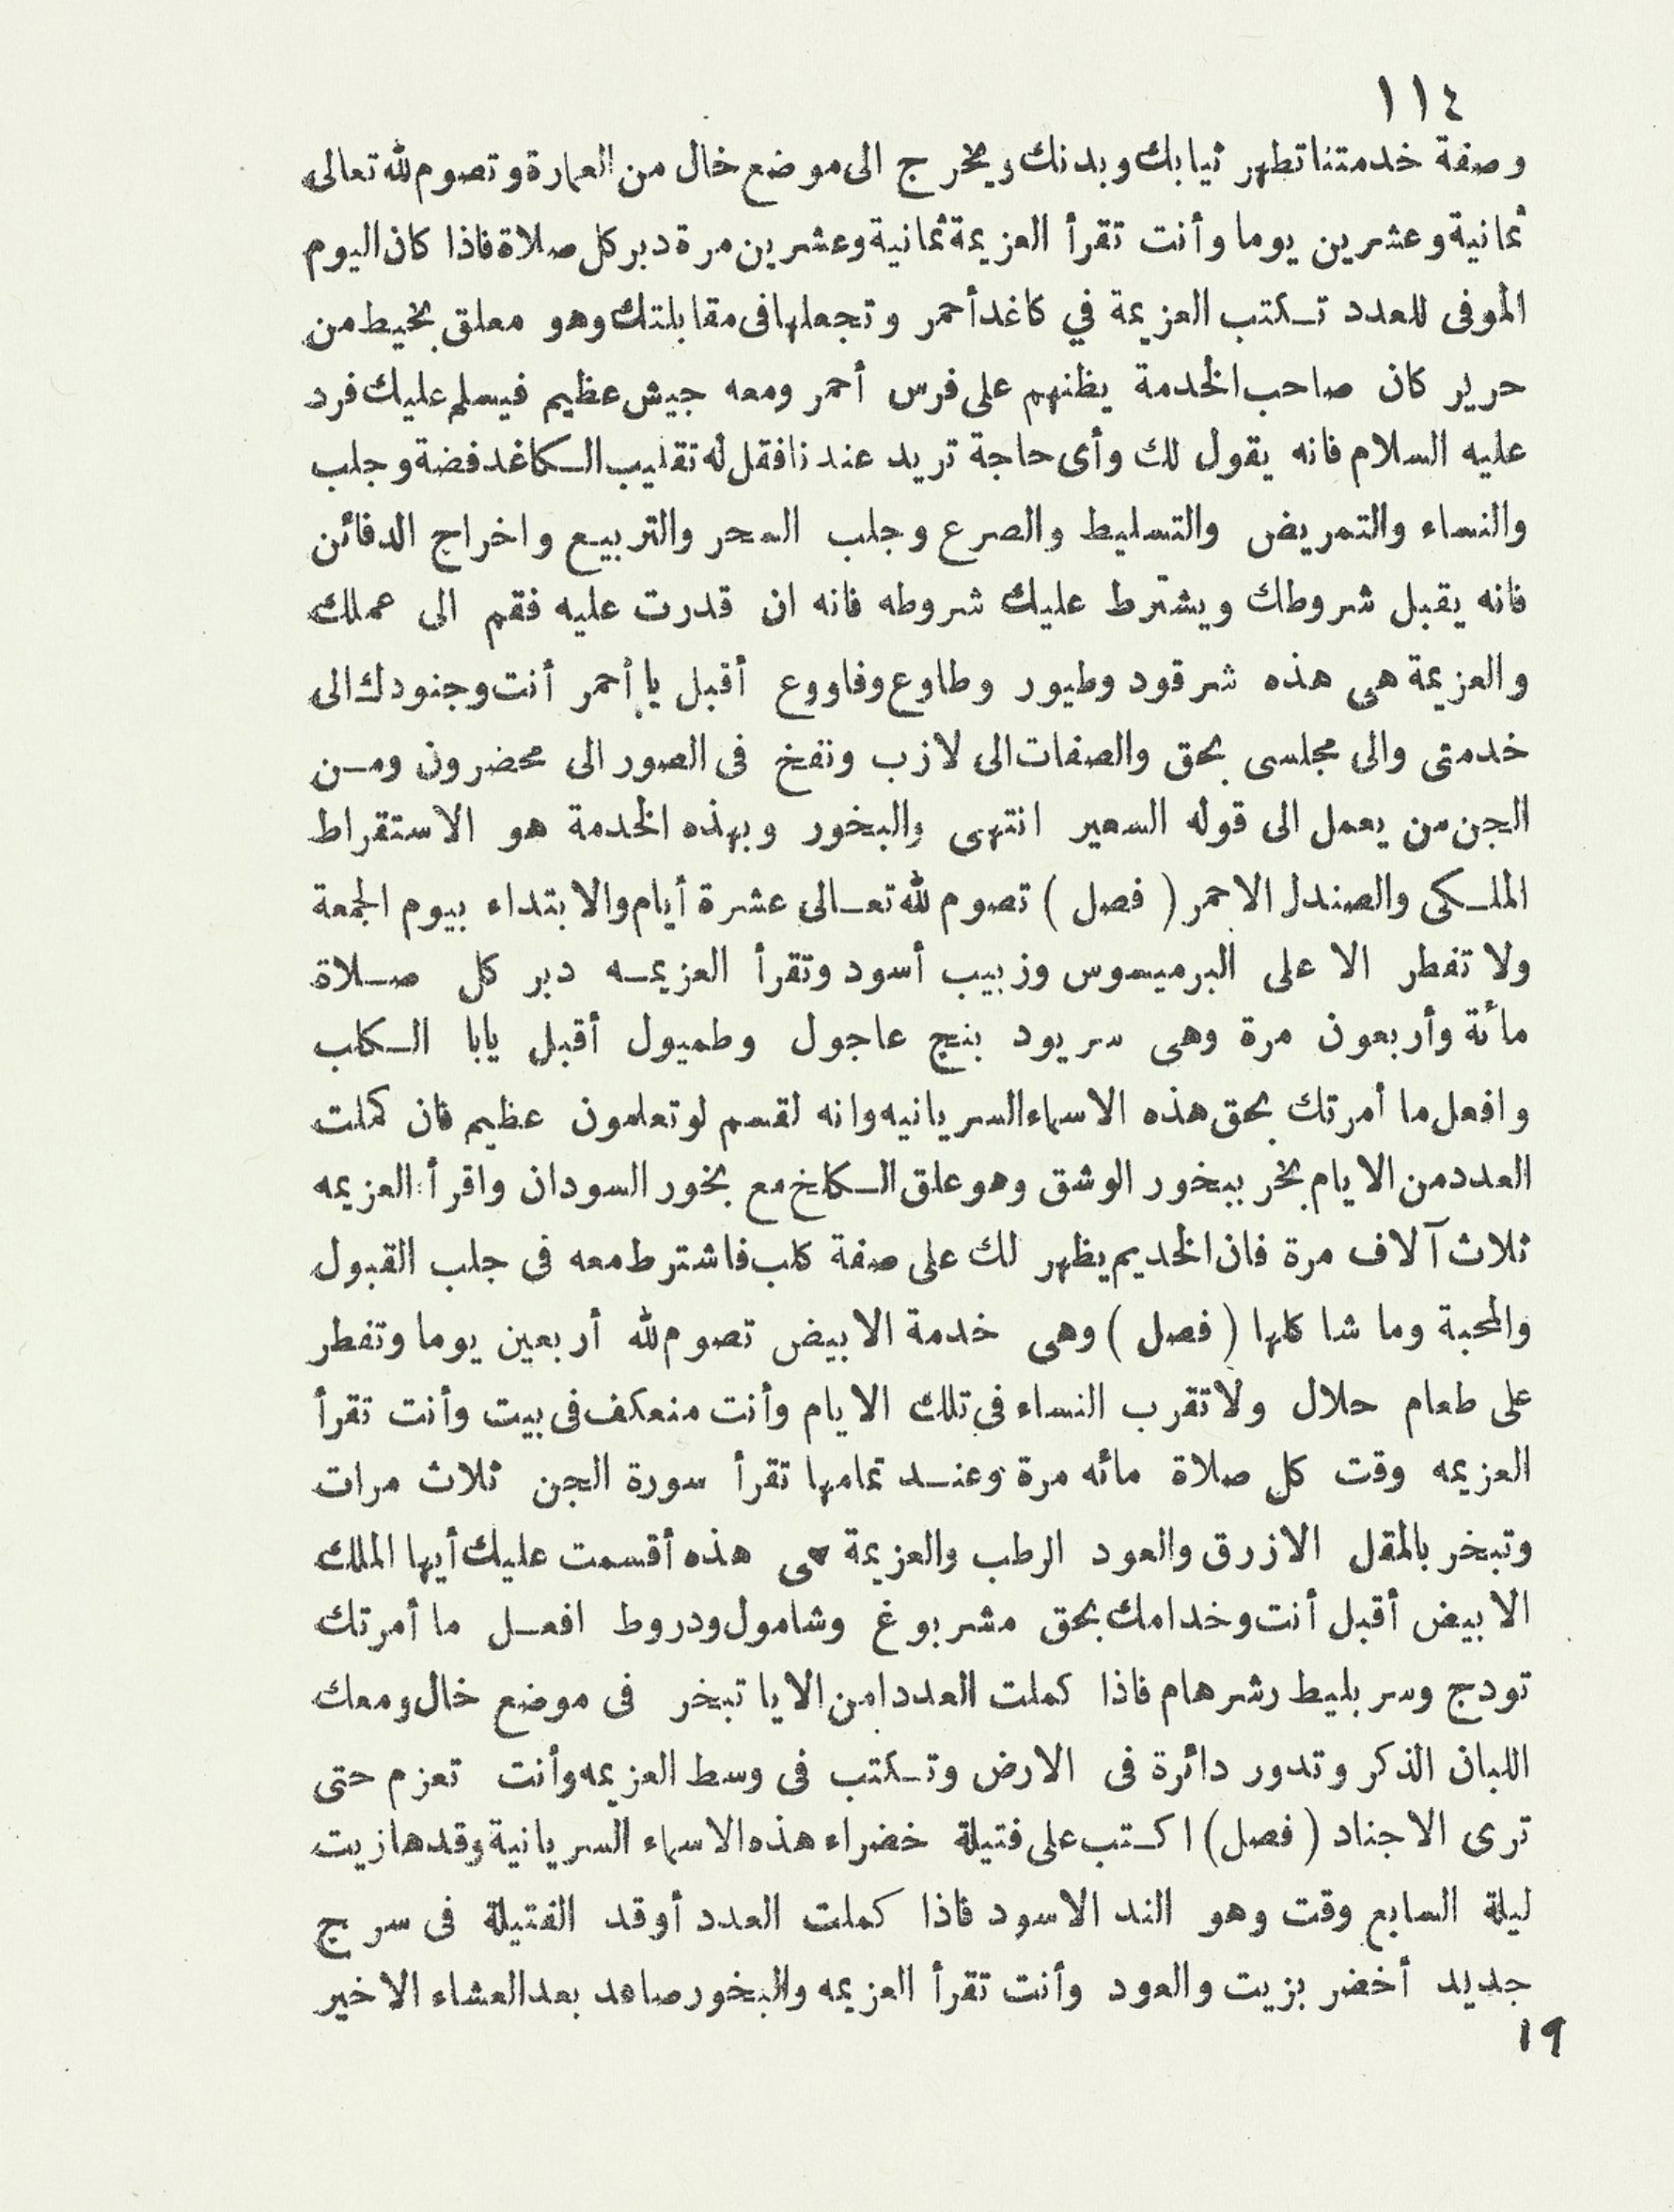 ١١٤
وصفة خدمتنا تطهر ثيابك وبدنك ويخرج الى موضع خال من العمارة وتصوم لله تعالى
ثمانية وعشرين يوما وأنت تقرأ العزيمة ثمانية وعشرين مرة دبر كل صلاة فاذا كان اليوم
الموفى للعدد تكتب العزيمة في كاغد أحمر وتجعلها فى مقابلتك وهو معلق بخيط من
حرير كان صاحب الخدمة يظنهم على فرس أحمر ومعه جيش عظيم فيسلم عليك فرد
عليه السلام فانه يقول لك وأى حاجة تريد عندنا فقل له تقليب الكاغد فضة وجلب
والنساء والتمريض والتسليط والصرع وجلب السحر والتربيع واخراج الدفائن
فانه يقبل شروطك ويشترط عليك شروطه فانه ان قدرت عليه فقم الى عملك
والعزيمة هى هذه شرقود وطيور وطاوع وفاووع أقبل يا أحمر أنت وجنودك الى
خدمتى والى مجلسى بحق والصفات الى لازب ونفخ فى الصور الى محضرون ومن
الجن من يعمل الى قوله السعير انتهى والبخور وبهذه الخدمة هو الاستقراط
الملكى والصندل الاحمر (فصل) تصوم لله تعالى عشرة أيام والابتداء بيوم الجمعة
ولا تفطر الا على البرميسوس وزبيب أسود وتقرأ العزيمه دبر كل صلاة
مائة وأربعون مرة وهى سريود بنج عاجول وطميول أقبل يابا الكلب
وافعل ما أمرتك بحق هذه الاسماء السريانيه وانه لقسم لو تعلمون عظيم فان كملت
العدد من الايام بخر ببخور الوشق وهو علق الكلخ مع بخور السودان واقرأ العزيمه
ثلاث آلاف مرة فان الخديم يظهر لك على صفة كلب فاشترط معه فى جلب القبول
والمحبة وما شا كلها (فصل) وهى خدمة الابيض تصوم لله أربعين يوما وتفطر
على طعام حلال ولا تقرب النساء فى تلك الايام وأنت منعكف فى بيت وأنت تقرأ
العزيمه وقت كل صلاة مائه مرة وعند تمامها تقرأ سورة الجن ثلاث مرات
وتبخر بالمقل الازرق والعود الرطب والعزيمة هى هذه أقسمت عليك أيها الملك
الابيض أقبل أنت وخدامك بحق مشربوغ وشامول ودروط افعل ما أمرتك
تودج وسر بليط رشرهام فاذا كملت العددا من الايا تبخر فى موضع خال ومعك
اللبان الذكر وتدور دائرة فى الارض وتكتب فى وسط العزيمه وأنت تعزم حتى
ترى الاجناد (فصل) اكتب على فتيلة خضراء هذه الاسماء السريانية وقدها زيت
ليلة السابع وقت وهو الند الاسود فاذا كملت العدد أوقد الفتيلة فى سرج
جديد أخضر بزيت والعود وأنت تقرأ العزيمه والبخور صاعد بعد العشاء الاخير
١٩